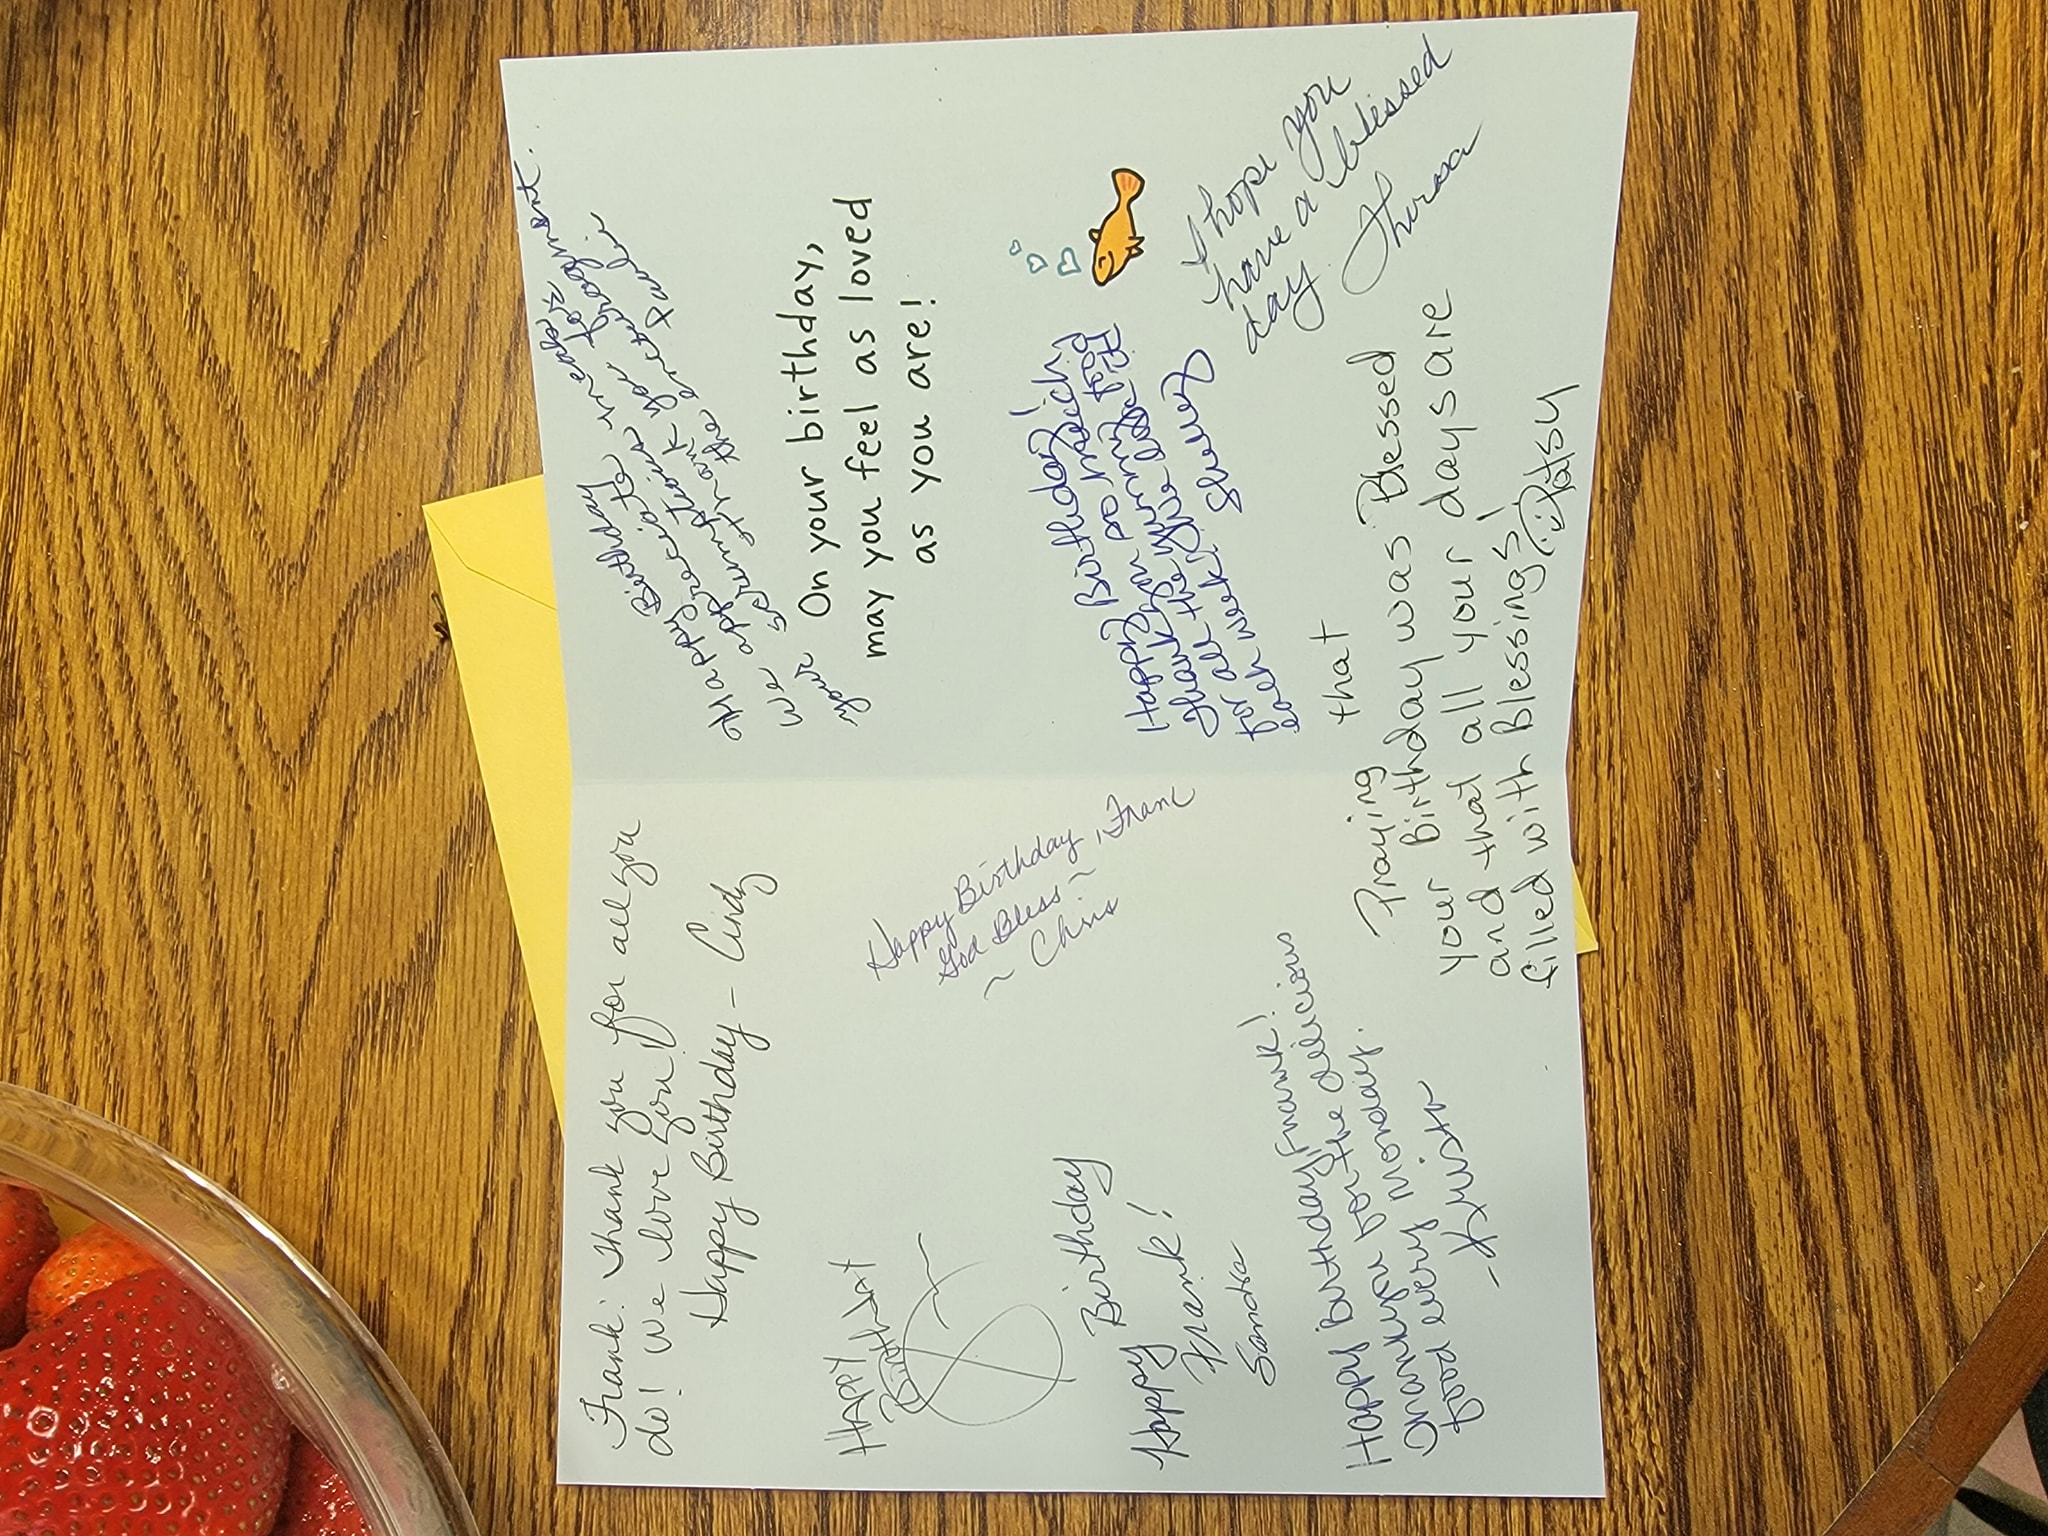 Frank: Thank you for all you
do! We love you!
Happy Birthday - Cindy
Happy
Birthday
Happy Birthday, Franc
God Bless ~
~ Chris
Happy Birthday
Frank!
Sandra
Happy Birthday, Frank!
Thank you for the delicious
food every Monday.
- Krista
Happy Birthday
We appreciate the meals
your scrumptious
thank you for
the encouragement.
Paulie
On your birthday,
may you feel as loved
as you are!
Happy Birthday!
Thank you so much
for all the yummy food
each week!
Steven
I hope you
have a blessed
day
Theresa
Praying that
your Birthday was Blessed
and that all your days are
filled with Blessings!
Patsy